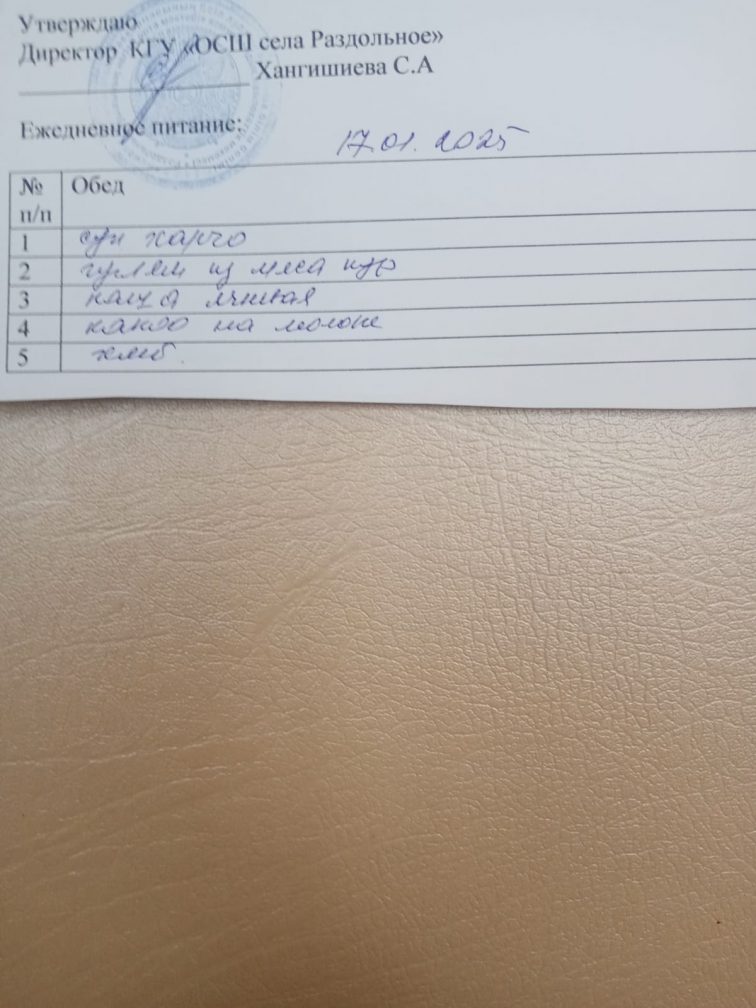 Утверждаю
Директор КГУ «ОСШ села Раздольное»
Хангишиева С.А
Ежедневное питание:
17.01.2025
№ п/п Обед
1 суп харчо
2 гуляш из мяса кур
3 каша ячневая
4 какао на молоке
5 хлеб.